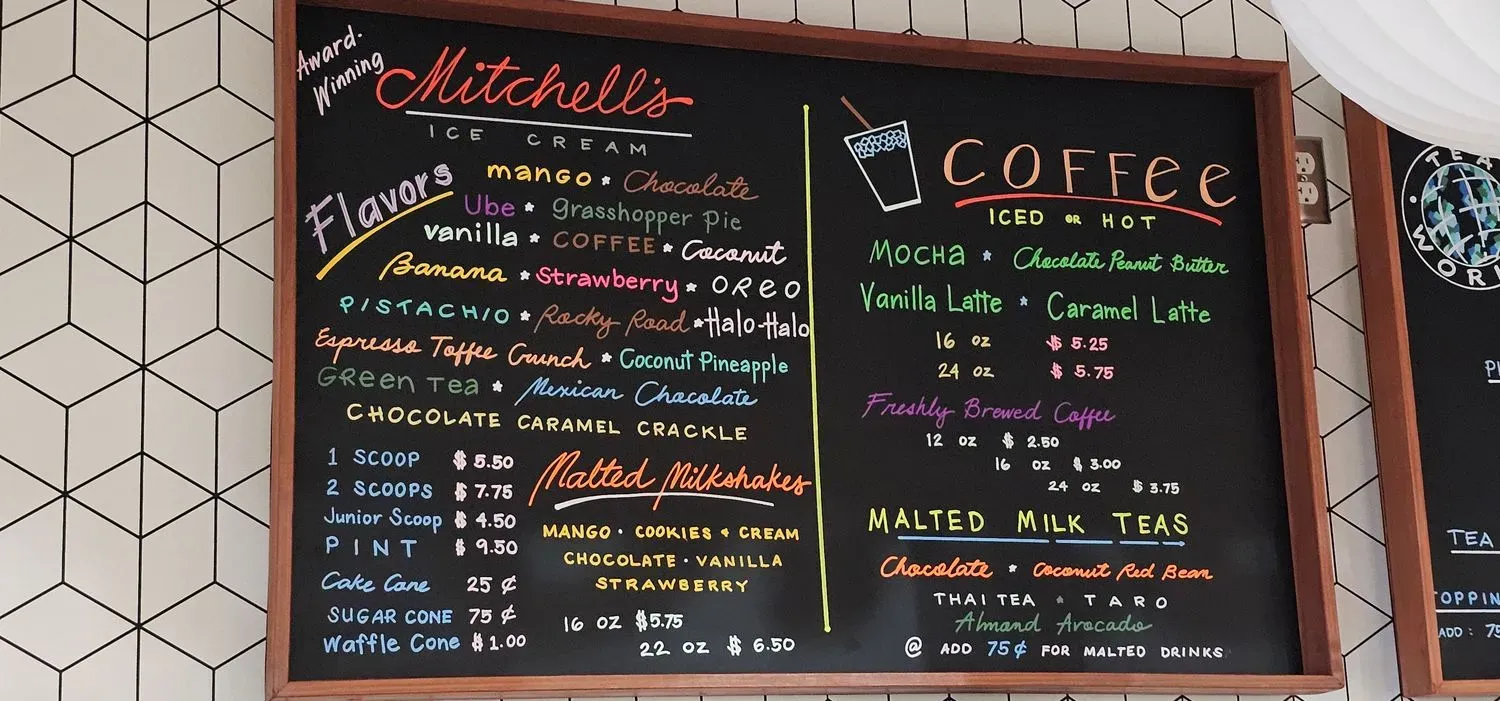 Award-
Winning
Mitchell's
ICE CREAM
Flavors
mango * Chocolate
Ube * Grasshopper Pie
vanilla * COFFEE * Coconut
Banana * Strawberry * OREO
PISTACHIO * Rocky Road * Halo-Halo
Espresso Toffee Crunch * Coconut Pineapple
GReen Tea * Mexican Chocolate
CHOCOLATE CARAMEL CRACKLE
1 SCOOP $5.50
2 SCOOPS $7.75
Junior Scoop $4.50
PINT $9.50
Cake Cone 25 ¢
SUGAR CONE 75 ¢
Waffle Cone $1.00
Malted Milkshakes
MANGO · COOKIES & CREAM
CHOCOLATE · VANILLA
STRAWBERRY
16 OZ $5.75
22 OZ $ 6.50
COFFee
ICED OR HOT
MOCHa * Chocolate Peanut Butter
Vanilla Latte * Caramel Latte
16 oz $ 5.25
24 oz $ 5.75
Freshly Brewed Coffee
12 oz $ 2.50
16 oz $ 3.00
24 oz $ 3.75
MALTED MILK TEAS
Chocolate * Coconut Red Bean
THAI TEA * TARO
Almond Avocado
@ ADD 75¢ FOR MALTED DRINKS
TEA